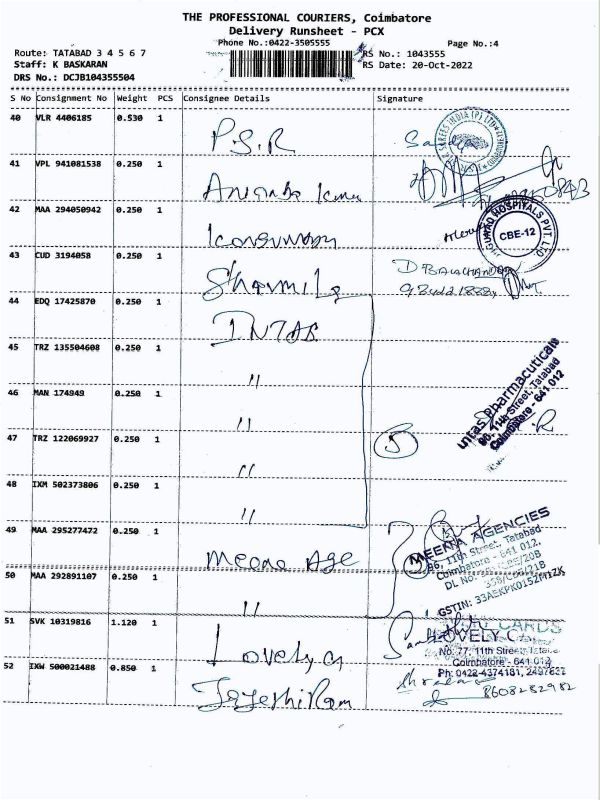 THE PROFESSIONAL COURIERS, Coimbatore
Delivery Runsheet - PCX
Phone No.:0422-3505555
Page No.:4
Route: TATABAD 3 4 5 6 7
RS No.: 1043555
Staff: K BASKARAN
RS Date: 20-Oct-2022
DRS No.: DCJB104355504
S No Consignment No Weight PCS Consignee Details Signature
40 VLR 4406185 0.530 1 P.S.R
41 VPL 941081538 0.250 1
42 MAA 294050942 0.250 1
HOSPITALS PVT LTD
CBE-12
43 CUD 3194058 0.250 1 Sharmila
D BALACHANDAR
44 EDQ 17425870 0.250 1 INTAS
45 TRZ 135504608 0.250 1 "
46 MAN 174949 0.250 1 "
Intas Pharmaceuticals
96, 11th Street, Tatabad
Coimbatore - 641 012
47 TRZ 122069927 0.250 1 "
5
48 IXM 502373806 0.250 1 "
49 MAA 295277472 0.250 1 Meena Age
MEENA AGENCIES
96, 11th Street, Tatabad
Coimbatore - 641 012.
DL No:
GSTIN:
50 MAA 292891107 0.250 1 "
51 SVK 10319816 1.120 1 Lovely
LOVELY CARDS
No. 77, 11th Street,
Coimbatore - 641 012
Ph: 0422-4374181,
52 IXW 500021488 0.850 1 JayashiRam
8608282982